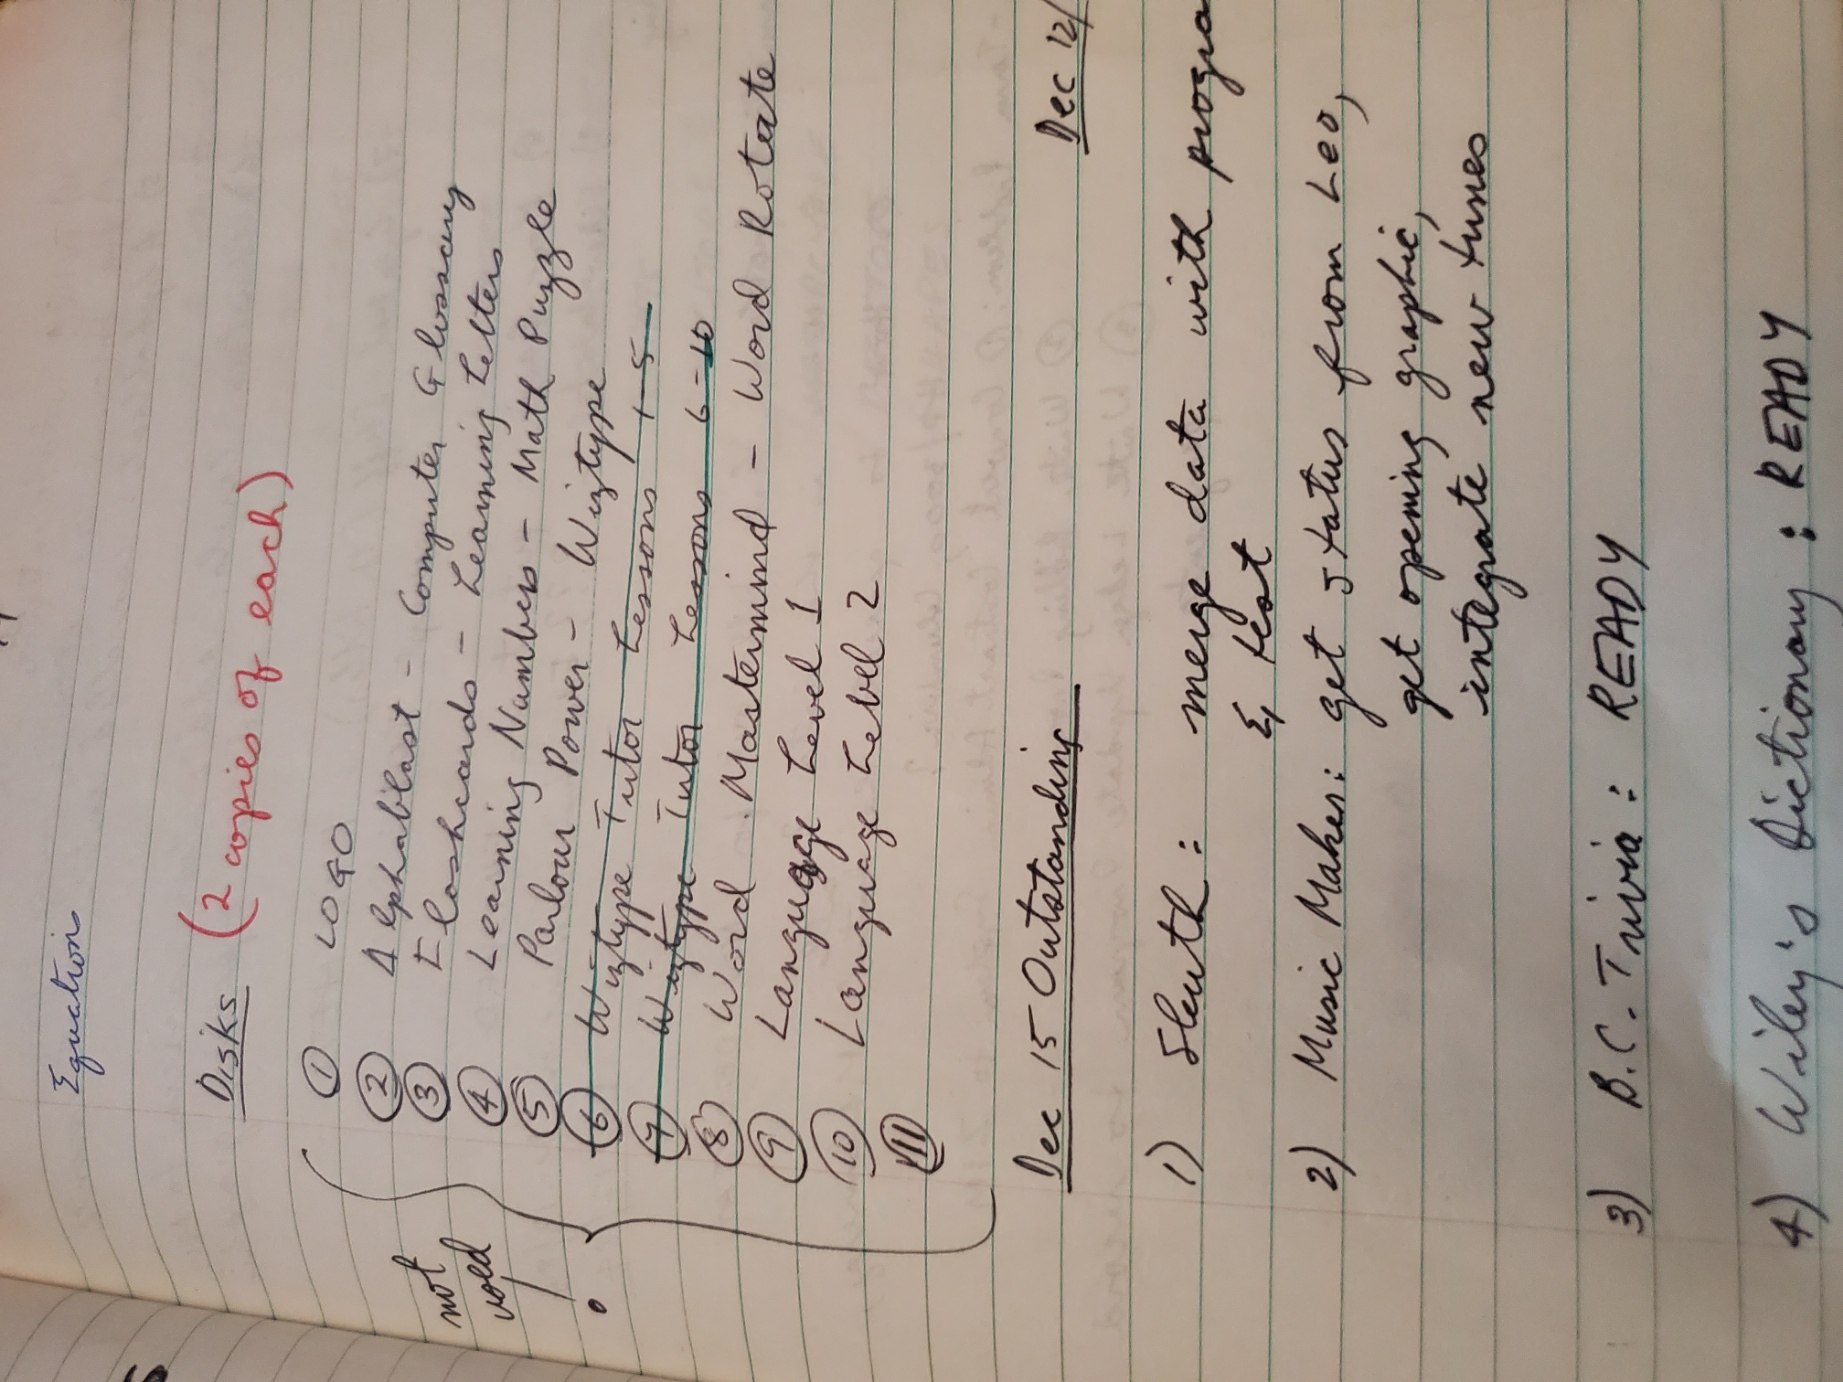 Equation
Disks (2 copies of each)
① LOGO
② Alphablast - Computer Glossary
③ Flashcards - Learning Letters
④ Learning Numbers - Math Puzzle
⑤ Parlour Power - Wiztype
⑥ Wiztype Tutor Lessons 1-5
⑦ Wiztype Tutor Lessons 6-10
⑧ Word Mastermind - Word Rotate
⑨ Language Level 1
⑩ Language Level 2
⑪
not
!
Dec 15 Outstanding Dec 12/
1) Sleuth: merge data with progra
& test
2) Music Maker: get status from Leo,
get opening graphic,
integrate new tunes
3) B.C. Trivia: READY
4) Wiley's Dictionary: READY